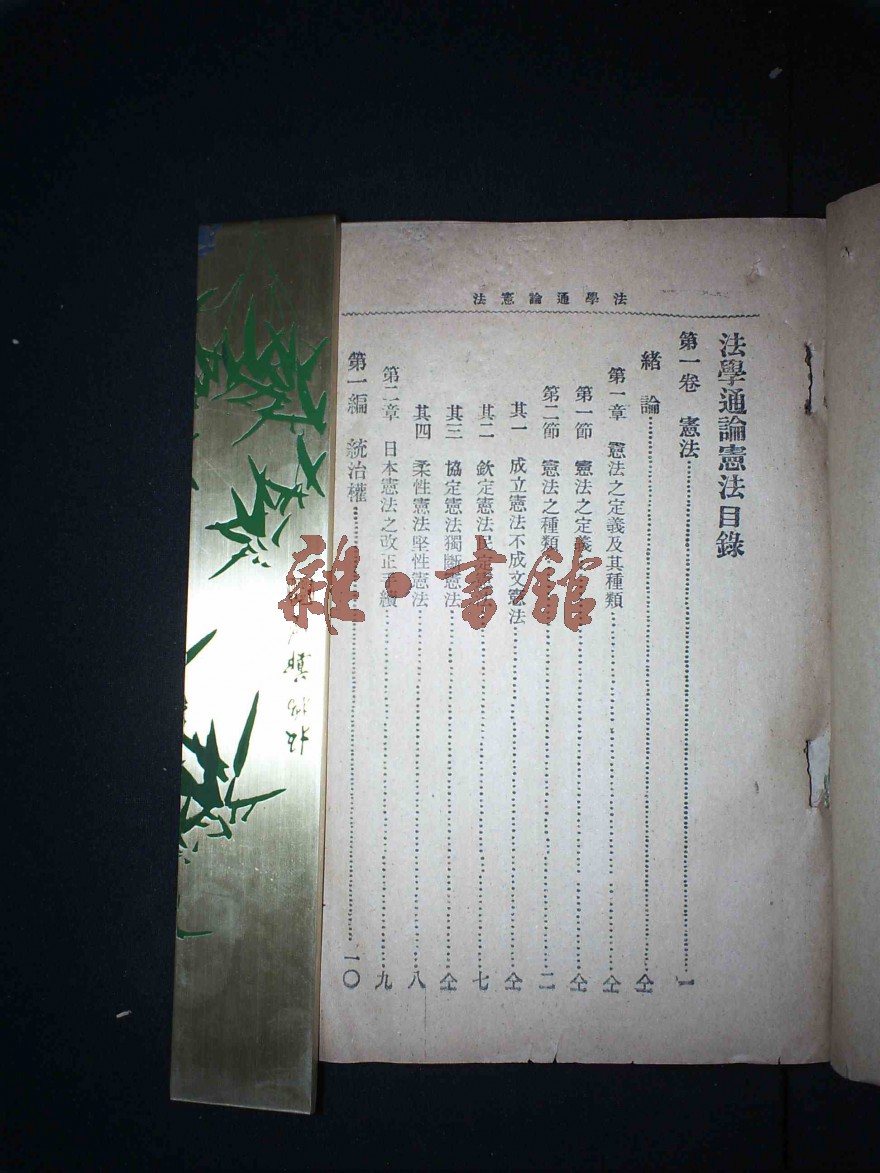 法學通論憲法
法學通論憲法目錄
第一卷　憲法…一
緒論…仝
第一章　憲法之定義及其種類…仝
第一節　憲法之定義…仝
第二節　憲法之種類…二
其一　成立憲法不成文憲法…仝
其二　欽定憲法民定憲法…七
其三　協定憲法獨斷憲法…仝
其四　柔性憲法堅性憲法…八
第二章　日本憲法之改正手續…九
第一編　統治權…一〇
雜·書館